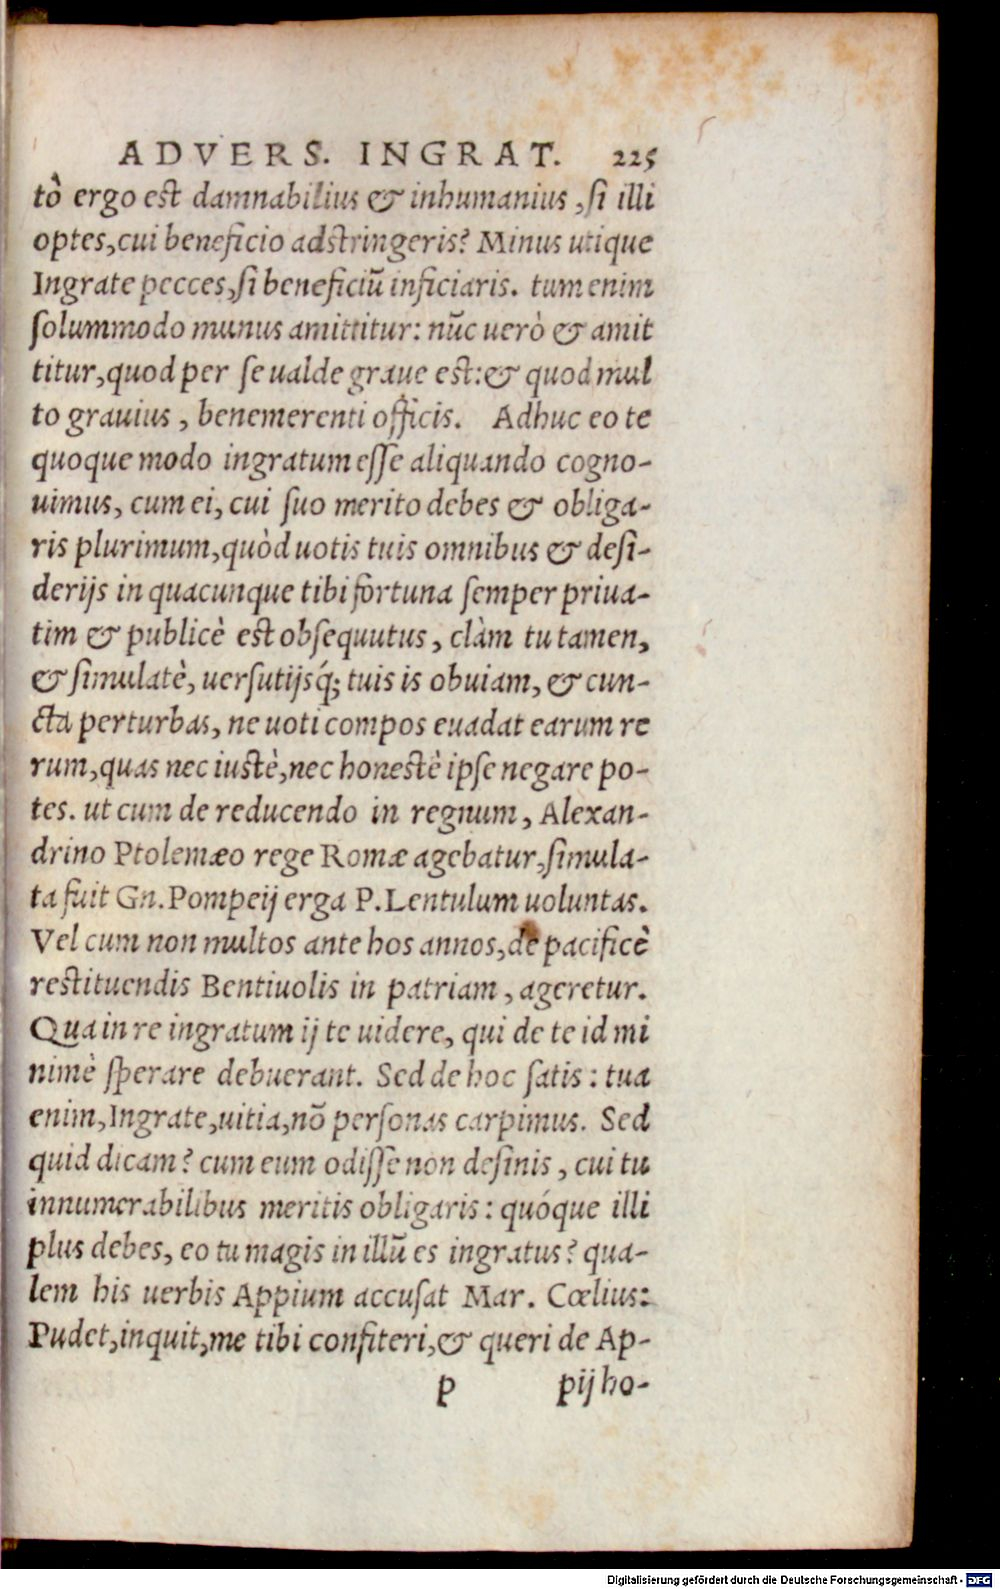 ADVERS. INGRAT. 225
tò ergo est damnabilius & inhumanius, si illi
optes, cui beneficio adstringeris? Minus utique
Ingrate pecces, si beneficiũ inficiaris. tum enim
solummodo munus amittitur: nũc uerò & amit
titur, quod per se ualde graue est: & quod mul
to grauius, benemerenti officis. Adhuc eo te
quoque modo ingratum esse aliquando cogno-
uimus, cum ei, cui suo merito debes & obliga-
ris plurimum, quòd uotis tuis omnibus & desi-
derijs in quacunque tibi fortuna semper priua-
tim & publicè est obsequutus, clàm tu tamen,
& simulatè, uersutijsq́; tuis is obuiam, & cun-
cta perturbas, ne uoti compos euadat earum re
rum, quas nec iustè, nec honestè ipse negare po-
tes. ut cum de reducendo in regnum, Alexan-
drino Ptolemæo rege Romæ agebatur, simula-
ta fuit Gn. Pompeij erga P. Lentulum uoluntas.
Vel cum non multos ante hos annos, de pacificè
restituendis Bentiuolis in patriam, ageretur.
Qua in re ingratum ij te uidere, qui de te id mi
nimè sperare debuerant. Sed de hoc satis: tua
enim, Ingrate, uitia, nõ personas carpimus. Sed
quid dicam? cum eum odisse non desinis, cui tu
innumerabilibus meritis obligaris: quóque illi
plus debes, eo tu magis in illũ es ingratus? qua-
lem his uerbis Appium accusat Mar. Cœlius:
Pudet, inquit, me tibi confiteri, & queri de Ap-
p pij ho-
Digitalisierung gefördert durch die Deutsche Forschungsgemeinschaft - DFG